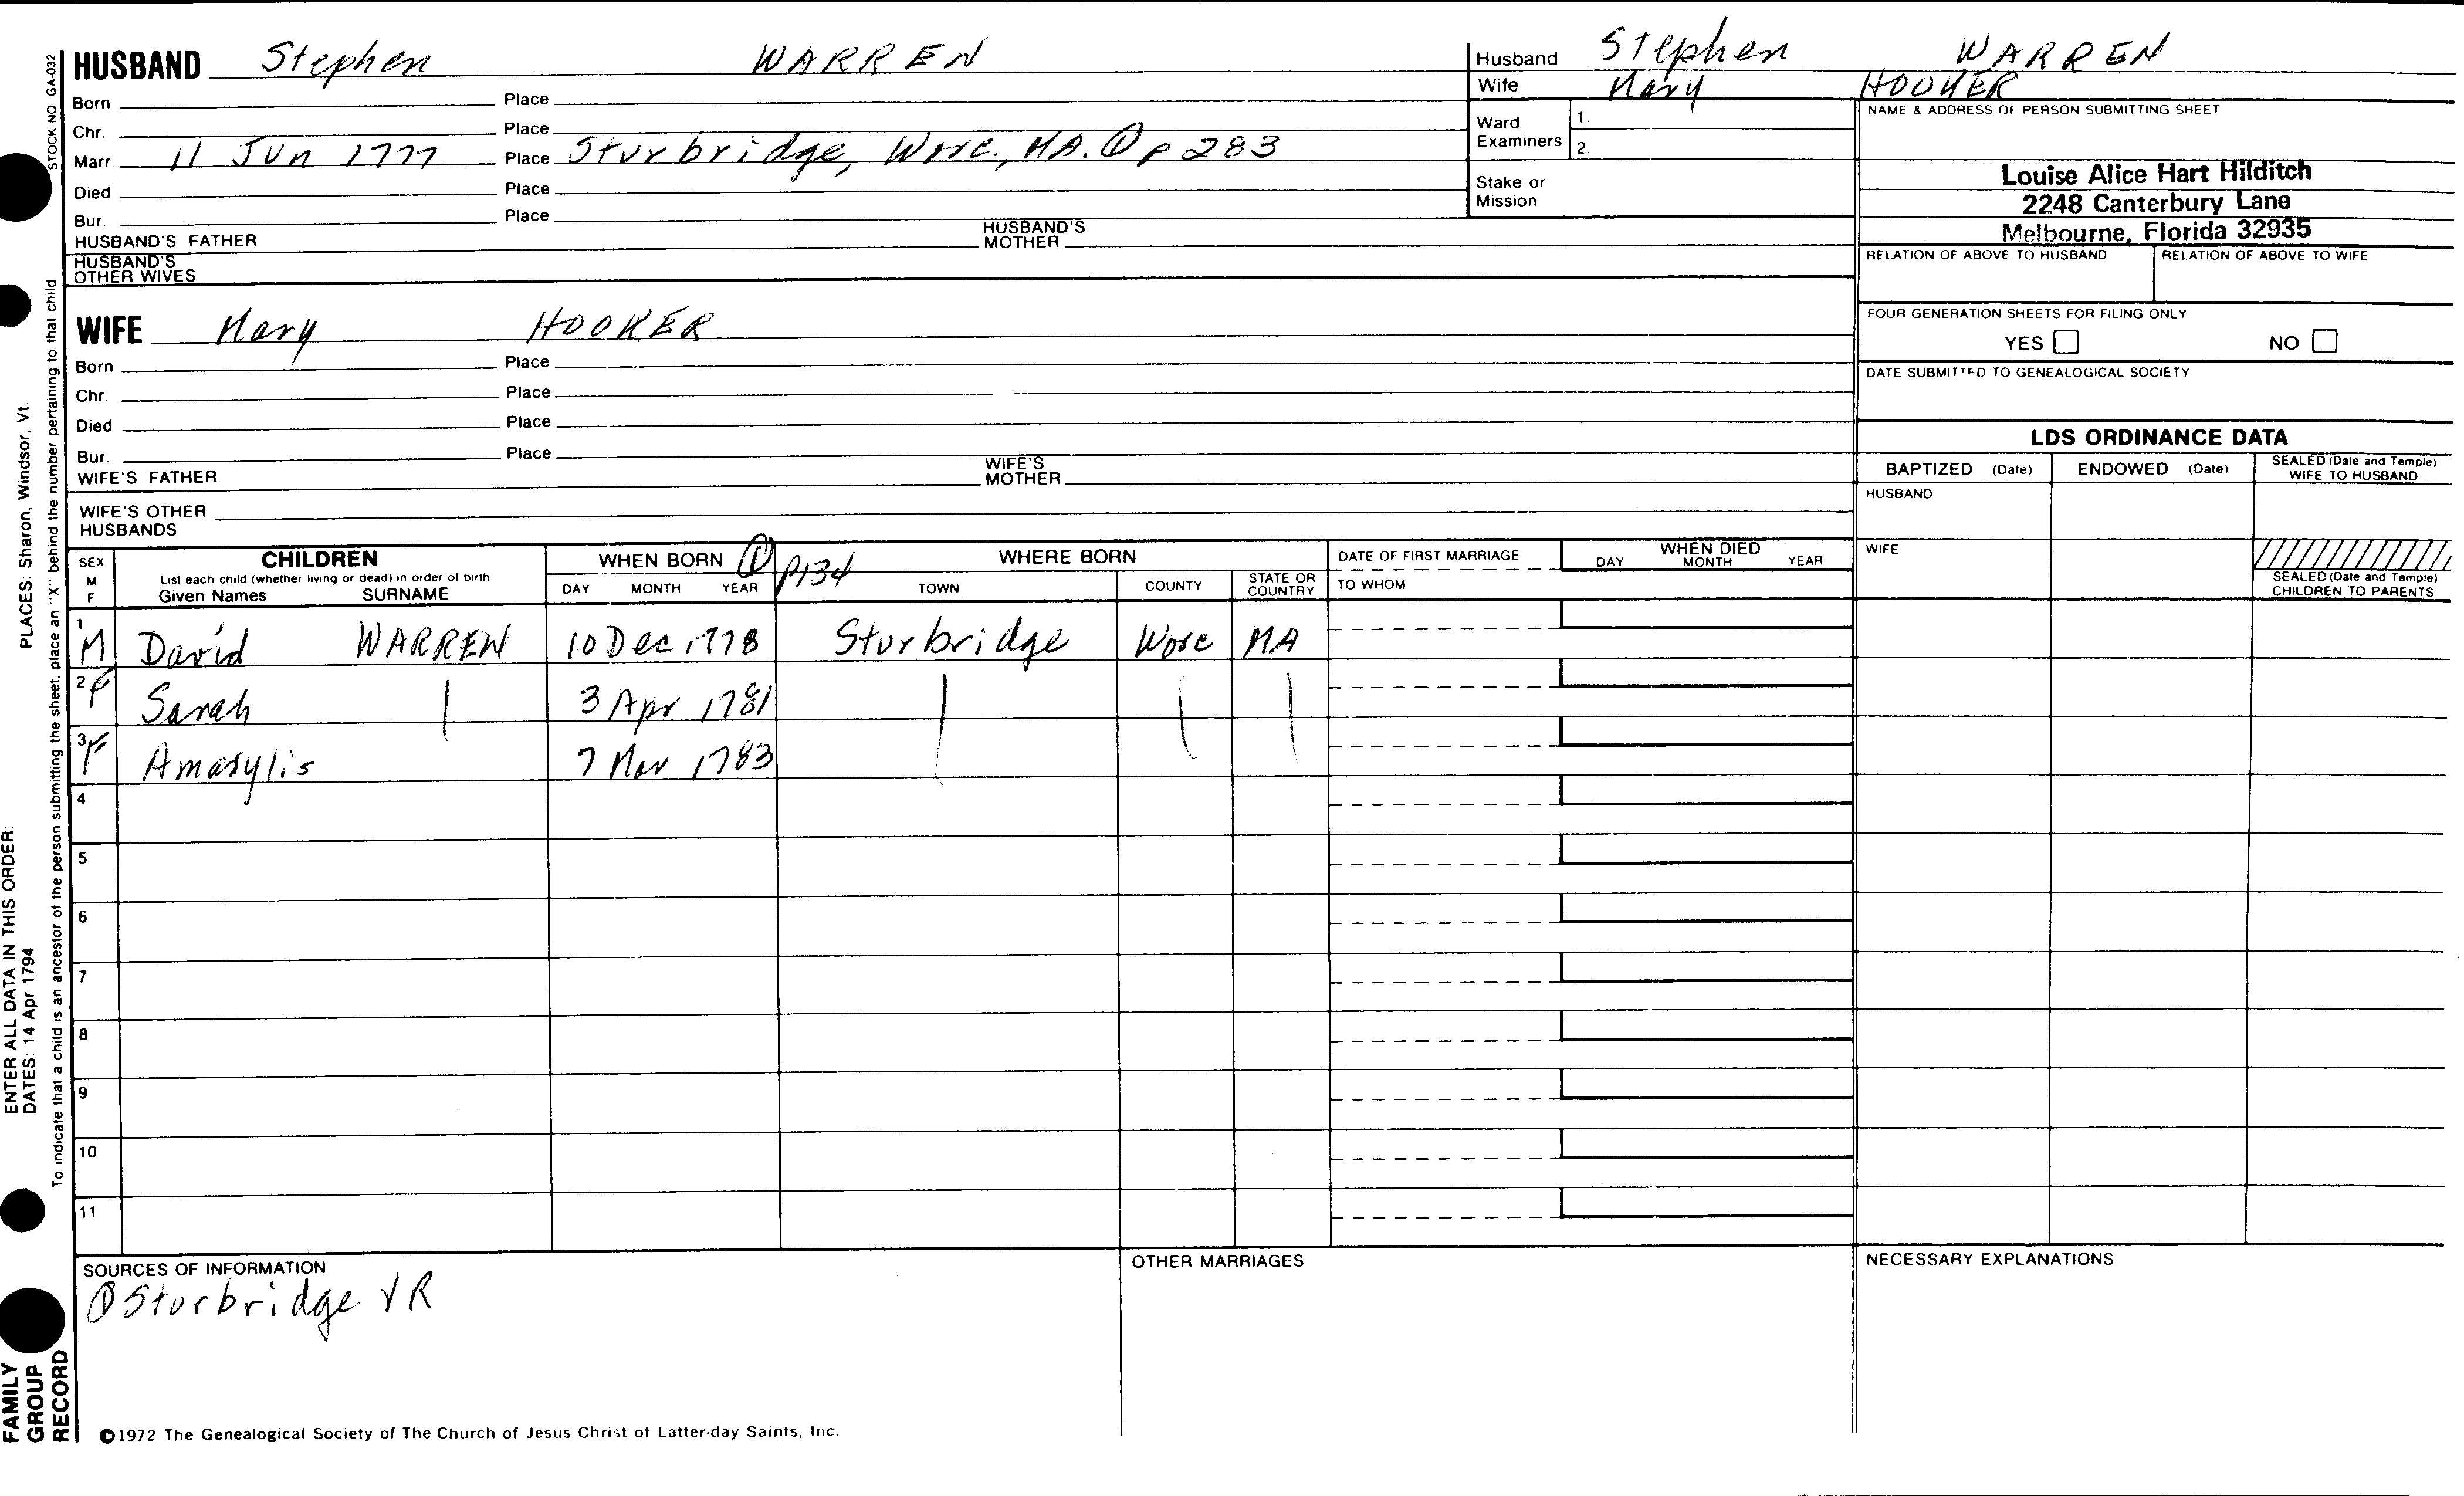 HUSBAND Stephen WARREN
Born Place
Chr. Place
Marr. 11 Jun 1777 Place Sturbridge, Worc., MA. ① p 283
Died Place
Bur. Place
HUSBAND'S FATHER HUSBAND'S MOTHER
HUSBAND'S OTHER WIVES
WIFE Mary HOOKER
Born Place
Chr. Place
Died Place
Bur. Place
WIFE'S FATHER WIFE'S MOTHER
WIFE'S OTHER HUSBANDS
Husband Stephen WARREN
Wife Mary HOOKER
Ward Examiners: 1. 2.
Stake or Mission
NAME & ADDRESS OF PERSON SUBMITTING SHEET
Louise Alice Hart Hilditch
2248 Canterbury Lane
Melbourne, Florida 32935
RELATION OF ABOVE TO HUSBAND RELATION OF ABOVE TO WIFE
FOUR GENERATION SHEETS FOR FILING ONLY
YES NO
DATE SUBMITTED TO GENEALOGICAL SOCIETY
LDS ORDINANCE DATA
BAPTIZED (Date) ENDOWED (Date) SEALED (Date and Temple) WIFE TO HUSBAND
HUSBAND
WIFE
SEALED (Date and Temple) CHILDREN TO PARENTS
SEX M F
CHILDREN
List each child (whether living or dead) in order of birth
Given Names SURNAME
WHEN BORN ① p134
DAY MONTH YEAR
WHERE BORN
TOWN COUNTY STATE OR COUNTRY
DATE OF FIRST MARRIAGE
TO WHOM
WHEN DIED
DAY MONTH YEAR
1 M David WARREN 10 Dec 1778 Sturbridge Worc MA
2 F Sarah | 3 Apr 1781 | | |
3 F Amarylis 7 Mar 1783
4
5
6
7
8
9
10
11
SOURCES OF INFORMATION
① Sturbridge VR
OTHER MARRIAGES
NECESSARY EXPLANATIONS
©1972 The Genealogical Society of The Church of Jesus Christ of Latter-day Saints, Inc.
STOCK NO GA-032
To indicate that a child is an ancestor of the person submitting the sheet, place an "X" behind the number pertaining to that child.
ENTER ALL DATA IN THIS ORDER:
DATES: 14 Apr 1794
PLACES: Sharon, Windsor, Vt.
FAMILY
GROUP
RECORD